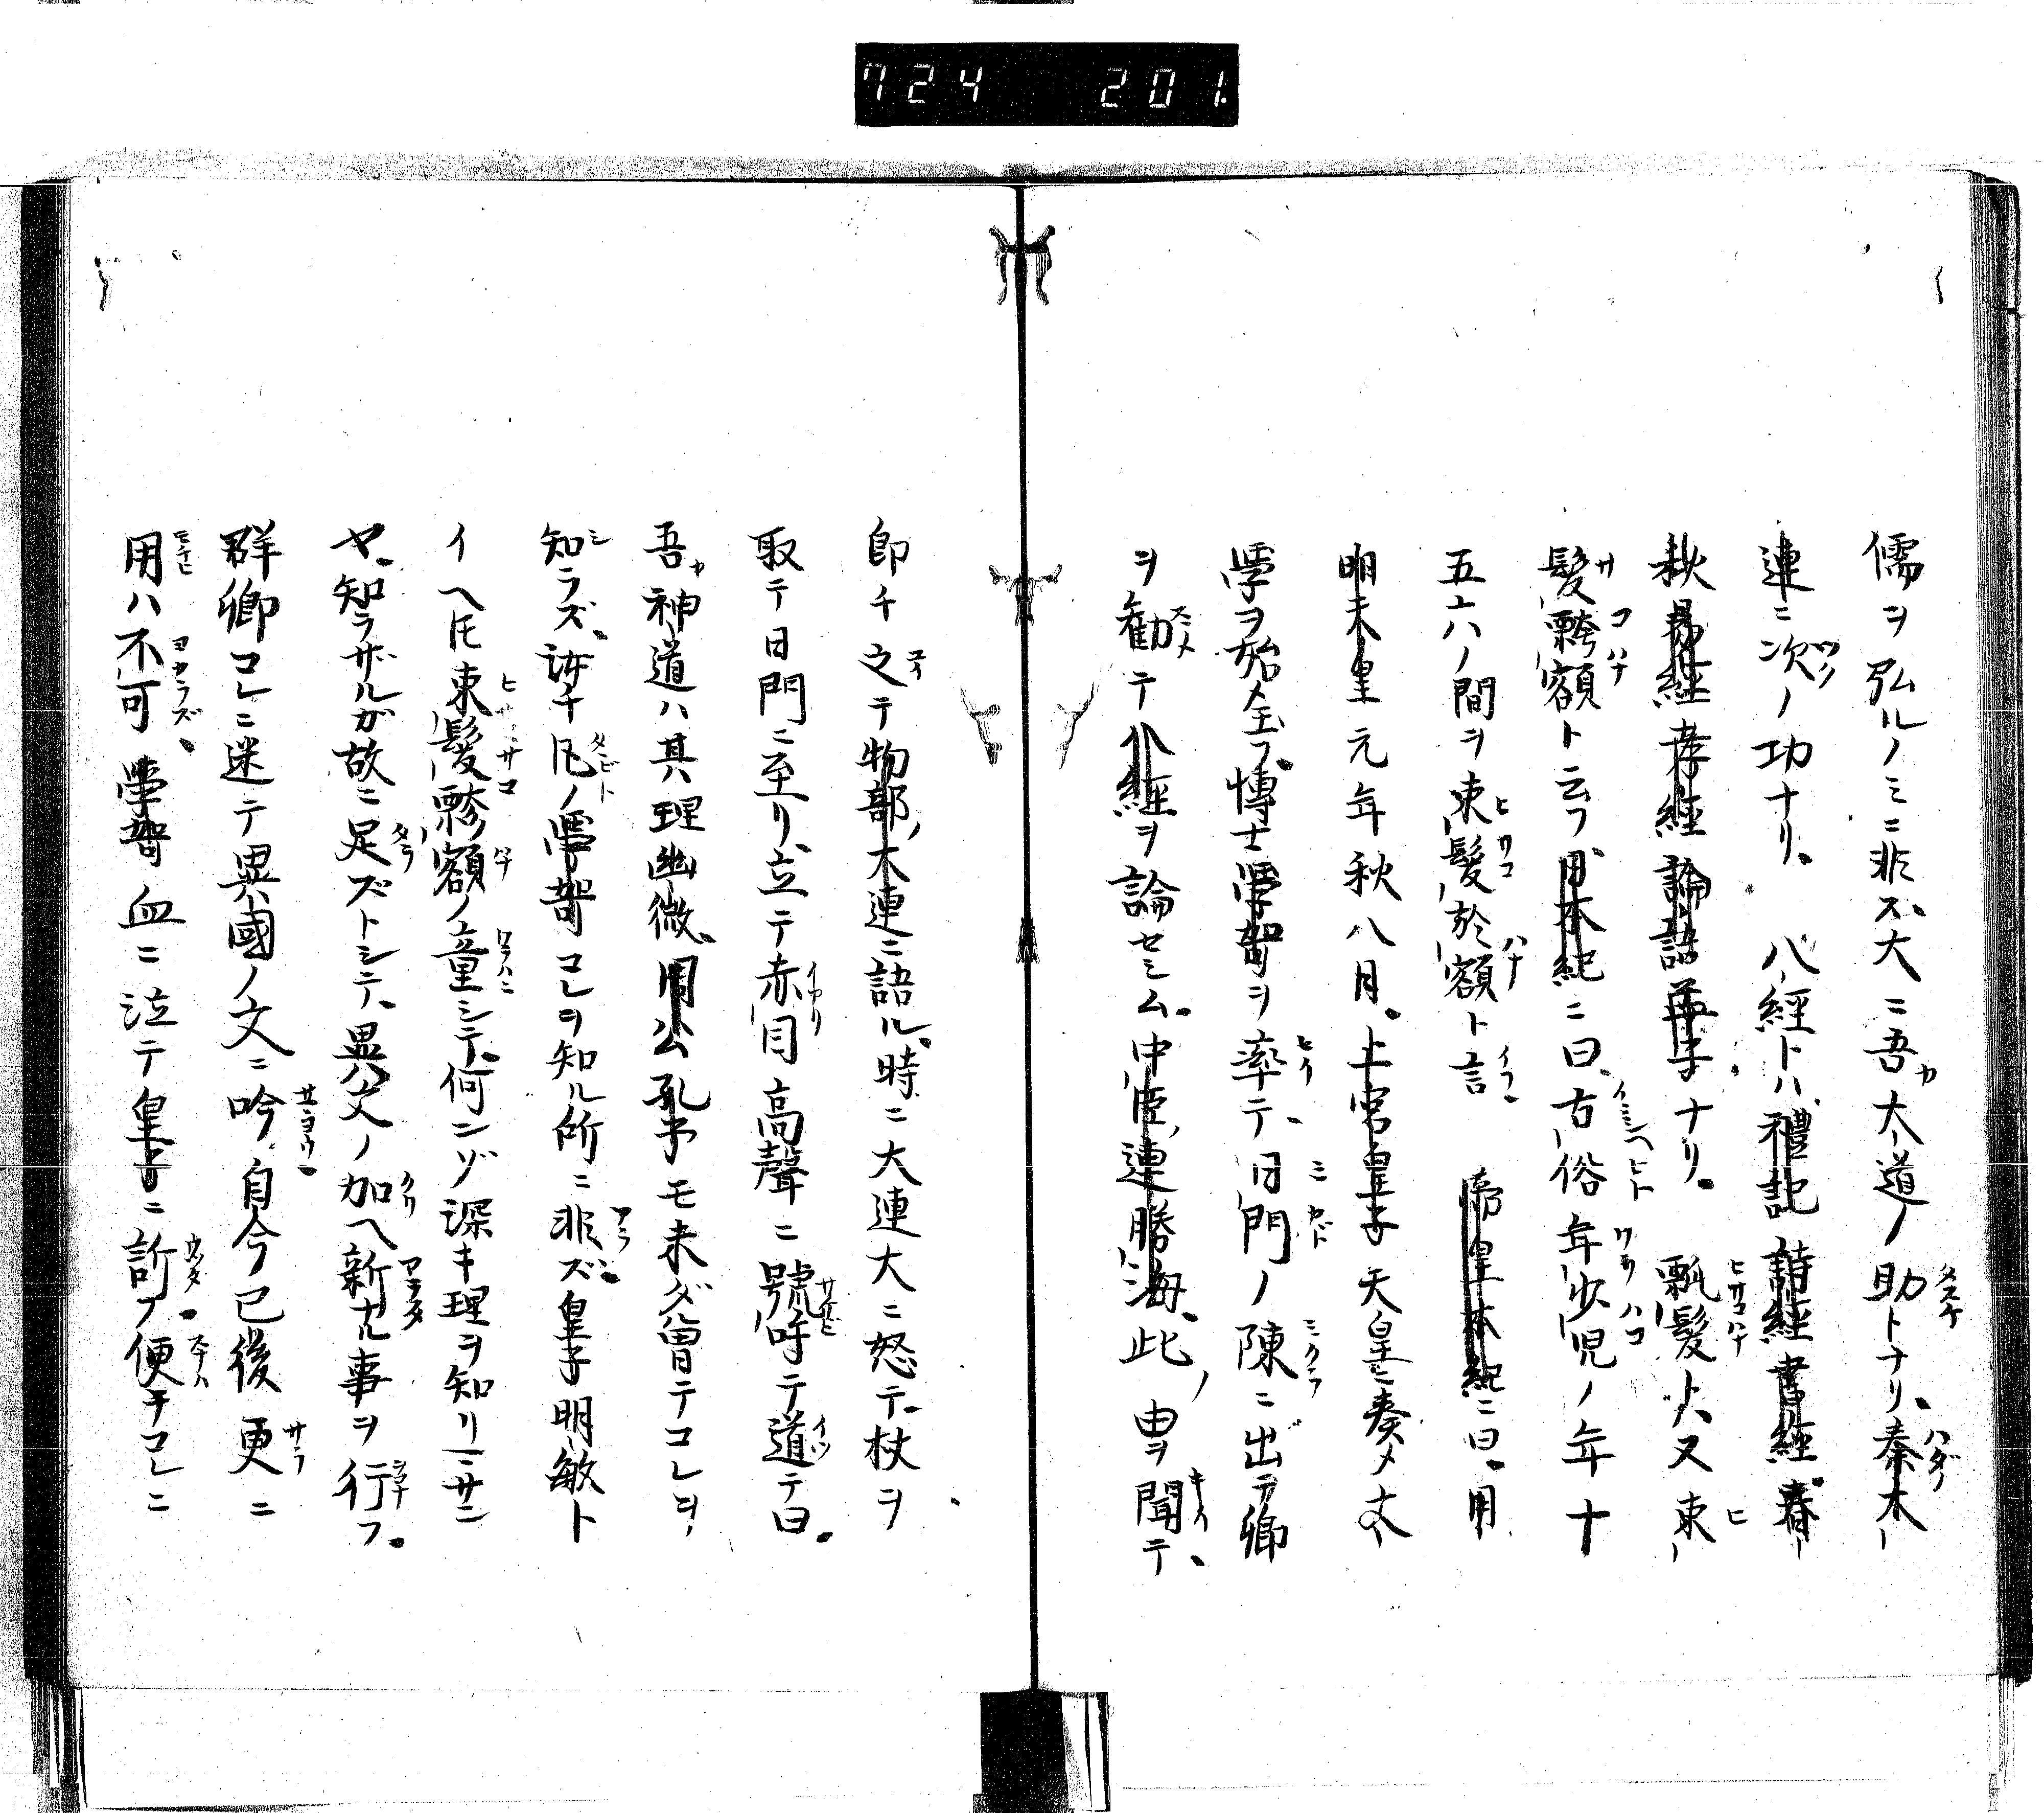 724 201.
儒ヲ弘ルノミニ非ズ、大ニ吾大道ノ助トナリ、秦木
連ニ次ノ功ナリ。 八經トハ、禮記 詩經 書經。春
秋 易經 孝經 論語 孟子ナリ。 瓢髮ト、又束
髮瓢額ト云フ 用本紀ニ曰、古俗年少児ノ年十
五六ノ間ヲ束髮於額ト言 帝皇本紀ニ曰。用
明天皇元年秋八月。上宮皇子 天皇ニ奏メ 大
學ヲ始メ玉フ。博士學哿ヲ率テ、日門ノ陳ニ出テ卿
ヲ勸テ八經ヲ論セシム。中臣連勝海、此ノ由ヲ聞テ、
即チ之テ物部大連ニ語ル。時ニ大連大ニ怒テ、杖ヲ
取テ日門ニ至リ、立テ赤目高聲ニ號呼テ道テ曰。
吾神道ハ其理幽微、周公孔子モ未ダ曾テコレヲ
知ラズ、凡ノ學哿コレヲ知ル所ニ非ズ。皇子明敏ト
イヘ𪜈束髮瓢額ノ童シテ、何ンゾ深キ理ヲ知リ
ヤ、知ラザルガ故ニ足ズトシテ、異文ノ加ヘ新ナル事ヲ行フ。
群卿コレニ迷テ異國ノ文ニ吟、自今已後更ニ
用ハ不可、學哿血ニ泣テ皇子ニ訴フ。便チコレニ